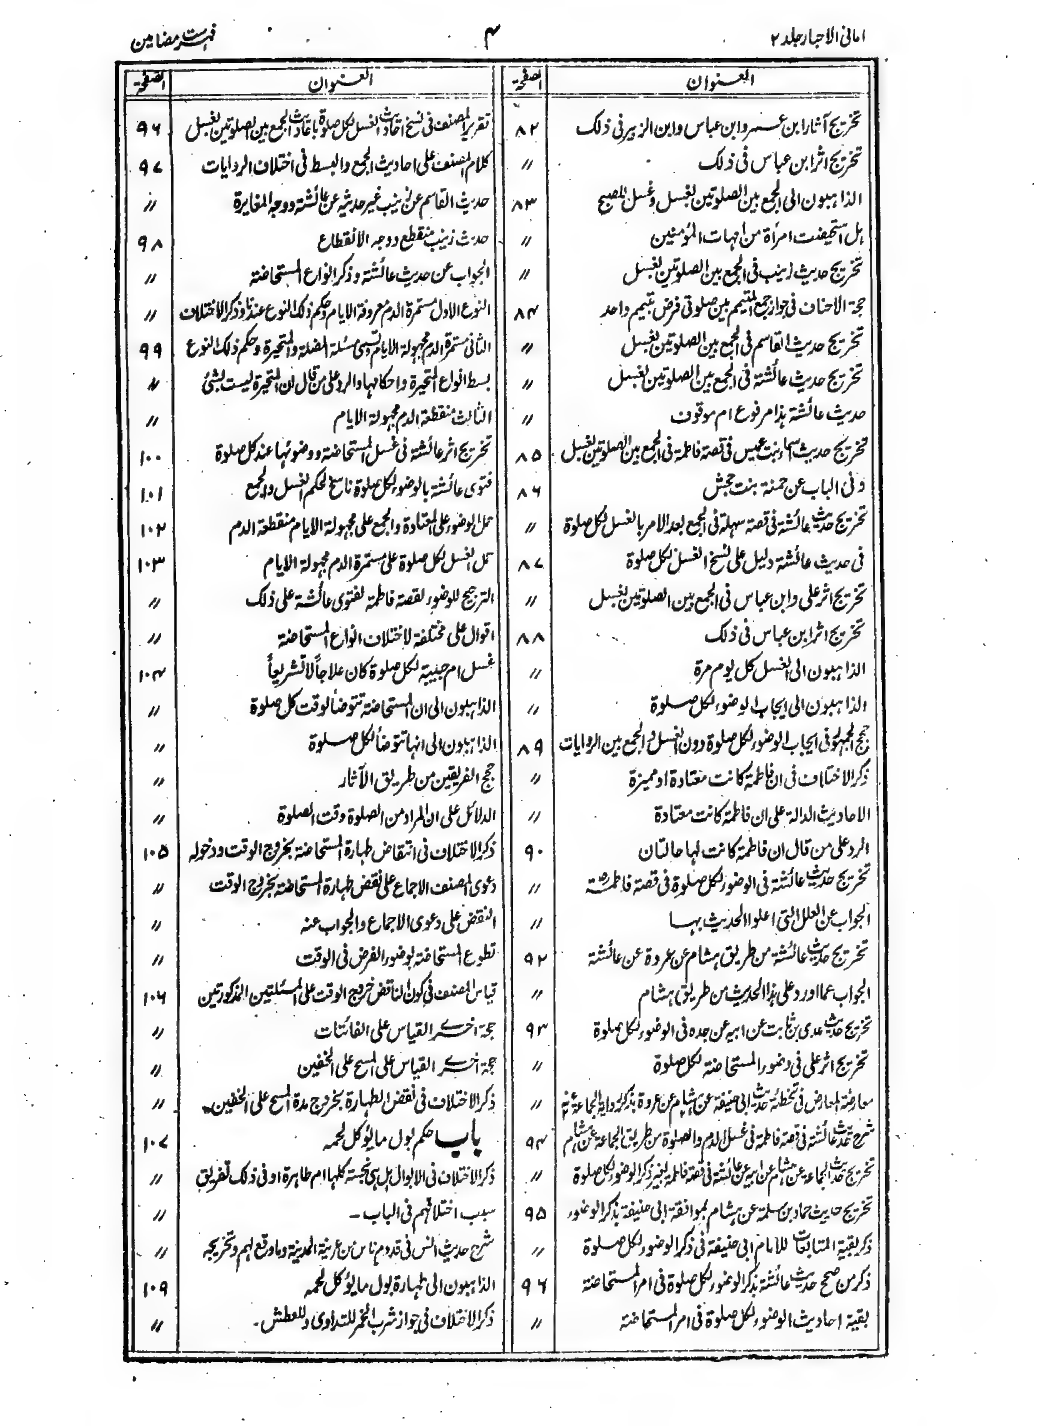 امانی الاحبار جلد ۲
۴
فہرست مضامین
العنوان
الصفحة
تخريج آثار ابن عمر وابن عباس وابن الزبير في ذلك ۸۲
تخريج اثر ابن عباس في ذلك //
الذاهبون الى الجمع بين الصلوتين بغسل وغسل للصبح ۸۳
هل استحيضت امرأة من امهات المؤمنين //
تخريج حديث زينب في الجمع بين الصلوتين بغسل //
حجة الاحناف في جواز جمع المتيمم بين صلوتى فرض بتيمم واحد ۸۴
تخريج حديث القاسم في الجمع بين الصلوتين بغسل //
تخريج حديث عائشة في الجمع بين الصلوتين بغسل //
حديث عائشة هذا مرفوع ام موقوف //
تخريج حديث اسماء بنت عميس في قصة فاطمة في الجمع بين الصلوتين بغسل ۸۵
وفي الباب عن حمنة بنت جحش ۸۶
تخريج حديث عائشة في قصة سهلة في الجمع بعد الامر بالغسل لكل صلوة //
في حديث عائشة دليل على نسخ الغسل لكل صلوة ۸۷
تخريج اثر على وابن عباس في الجمع بين الصلوتين بغسل //
تخريج اثر ابن عباس في ذلك ۸۸
الذاهبون الى الغسل كل يوم مرة //
الذاهبون الى ايجاب الوضوء لكل صلوة //
حجج الجمهور في ايجاب الوضوء لكل صلوة دون الغسل والجمع بين الروايات ۸۹
ذكر الاختلاف في ان فاطمة كانت معتادة او مميزة //
الاحاديث الدالة على ان فاطمة كانت معتادة //
الرد على من قال ان فاطمة كانت لها حالتان ۹۰
تخريج حديث عائشة في الوضوء لكل صلوة في قصة فاطمة //
الجواب عن العلل التى اعلوا الحديث بها //
تخريج حديث عائشة من طريق هشام عن عروة عن عائشة ۹۲
الجواب عما اورد على هذا الحديث من طريق هشام //
تخريج حديث عدى بن ثابت عن ابيه عن جده في الوضوء لكل صلوة ۹۳
تخريج اثر على في وضوء المستحاضة لكل صلوة //
معارضة المعارض في تخطئة حديث ابى حنيفة عن هشام عن عروة بذكر رواية الجماعة عنه //
شرح حديث عائشة في قصة فاطمة في غسل الدم والصلوة من طريق الجماعة عن هشام ۹۴
تخريج حديث الجماعة عن هشام عن ابيه عن عائشة في قصة فاطمة بغير ذكر الوضوء لكل صلوة //
تخريج حديث حماد بن سلمة عن هشام بموافقة ابى حنيفة بذكر الوضوء ۹۵
ذكر بقية المتابعات للامام ابى حنيفة في ذكر الوضوء لكل صلوة //
ذكر من صحح حديث عائشة بذكر الوضوء لكل صلوة في امر المستحاضة ۹۶
بقية احاديث الوضوء لكل صلوة في امر المستحاضة //
العنوان
الصفحة
تقرير المصنف في نسخ احاديث الغسل لكل صلوة باحاديث الجمع بين الصلوتين بغسل ۹۶
كلام المصنف على احاديث الجمع والبسط في اختلاف الروايات ۹۷
حديث القاسم عن زينب غير حديثه عن عائشة ووجه المغايرة //
حديث زينب منقطع ووجه الانقطاع ۹۸
الجواب عن حديث عائشة وذكر انواع المستحاضة //
النوع الاول مستمرة الدم معروفة الايام وحكم ذلك النوع عندنا وذكر الاختلاف //
الثانى مستمرة الدم مجهولة الايام وتسمى مسئلة المضلة والمتحيرة وحكم ذلك النوع ۹۹
بسط انواع المتحيرة واحكامها والرد على من قال ان المتحيرة ليست بشئ //
الثالث منقطعة الدم مجهولة الايام //
تخريج اثر عائشة في غسل المستحاضة ووضوئها عند كل صلوة ۱۰۰
فتوى عائشة بالوضوء لكل صلوة ناسخ لحكم الغسل والجمع ۱۰۱
حمل الوضوء على المعتادة والجمع على مجهولة الايام منقطعة الدم ۱۰۲
حمل الغسل لكل صلوة على مستمرة الدم مجهولة الايام ۱۰۳
الترجيح للوضوء لقصة فاطمة لفتوى عائشة على ذلك //
اقوال على مختلفة لاختلاف انواع المستحاضة //
غسل ام حبيبة لكل صلوة كان علاجاً لا تشريعاً ۱۰۴
الذاهبون الى ان المستحاضة تتوضأ لوقت كل صلوة //
الذاهبون الى انها تتوضأ لكل صلوة //
حجج الفريقين من طريق الآثار //
الدلائل على ان المراد من الصلوة وقت الصلوة //
ذكر الاختلاف في انتقاض طهارة المستحاضة بخروج الوقت ودخوله ۱۰۵
دعوى المصنف الاجماع على نقض طهارة المستحاضة بخروج الوقت //
النقض على دعوى الاجماع والجواب عنه //
تطوع المستحاضة بوضوء الفرض في الوقت //
قياس المصنف في كون الناقض خروج الوقت على المسئلتين المذكورتين ۱۰۶
حجة اخرى القياس على الفائتات //
حجة اخرى القياس على المسح على الخفين //
ذكر الاختلاف في نقض الطهارة بخروج مدة المسح على الخفين //
باب حكم بول ما يؤكل لحمه ۱۰۷
ذكر الاختلاف في الابوال هل هى نجسة كلها ام طاهرة او في ذلك تفريق //
سبب اختلافهم في الباب - //
شرح حديث انس في قدوم ناس من عرينة المدينة وما وقع لهم وتخريجه //
الذاهبون الى طهارة بول ما يؤكل لحمه ۱۰۹
ذكر الاختلاف في جواز شرب الخمر للتداوى وللعطش - //